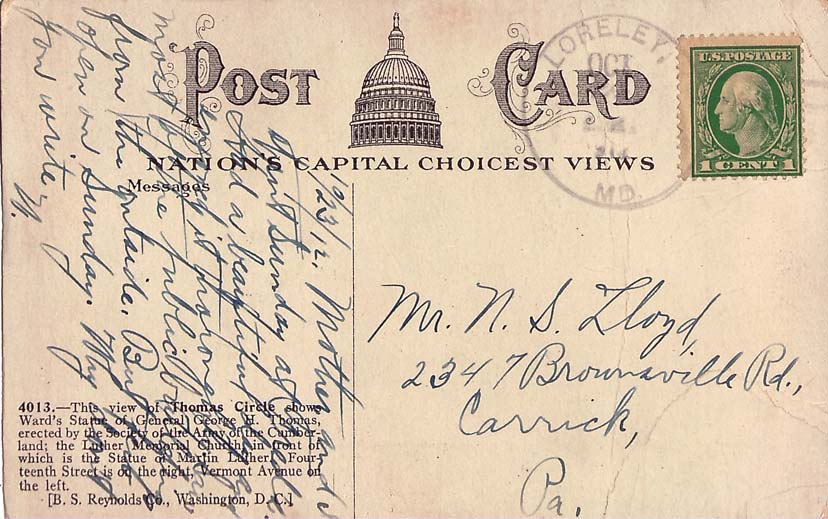 POST CARD
NATION'S CAPITAL CHOICEST VIEWS
Messages
LORELEY,
OCT
MD.
U.S. POSTAGE
1 CENT 1
10/23/12. Mother and I
spent Sunday at
had a beautiful
enjoyed it thoroughly
most of the public
from the outside. But
open on Sunday. Why
you write.
Mr. N. S. Lloyd,
2347 Brownsville Rd.,
Carrick,
Pa.
4013.—This view of Thomas Circle shows
Ward's Statue of General George H. Thomas,
erected by the Society of the Army of the Cumber-
land; the Luther Memorial Church in front of
which is the Statue of Martin Luther. Four-
teenth Street is on the right, Vermont Avenue on
the left.
[B. S. Reynolds Co., Washington, D. C.]